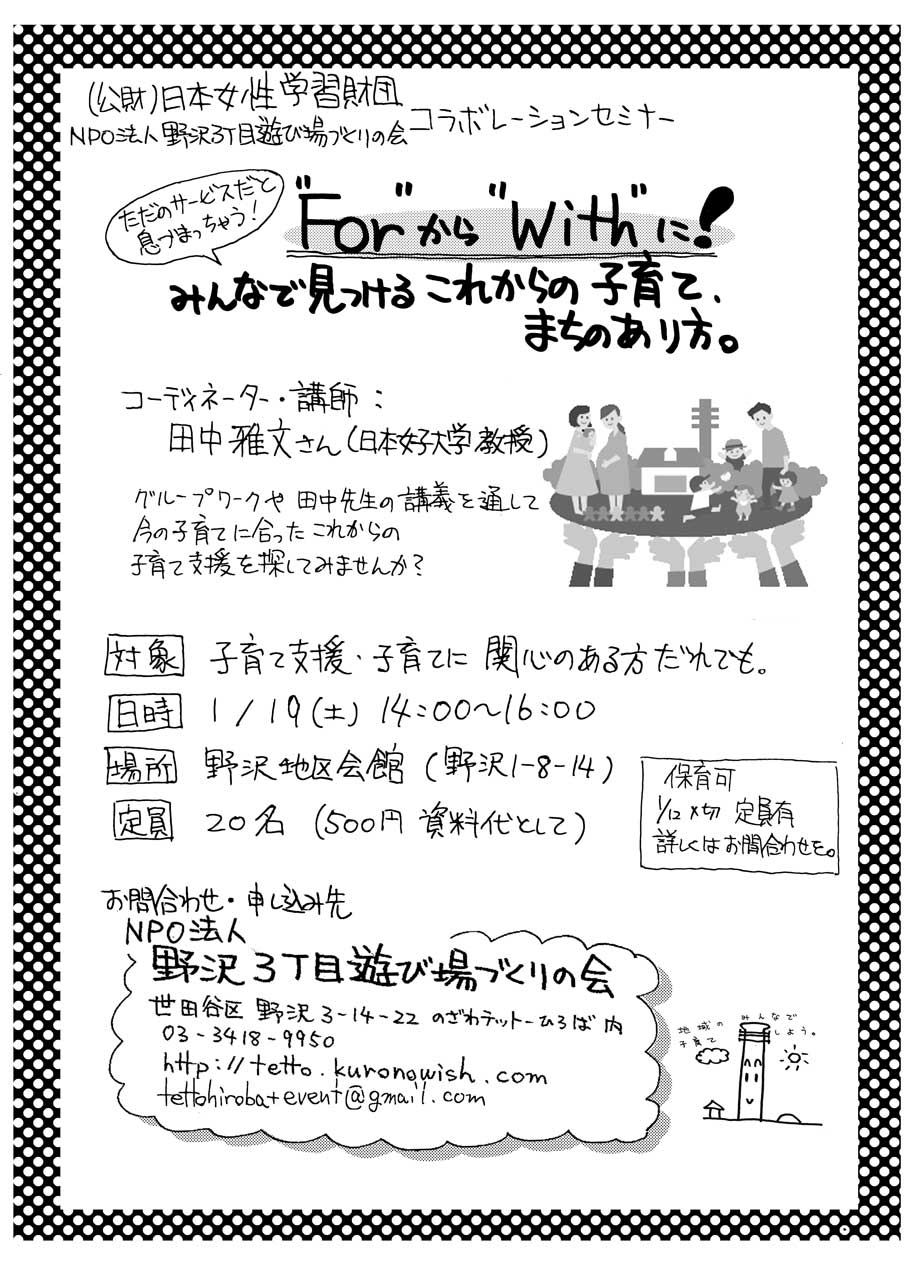 (公財)日本女性学習財団
NPO法人 野沢3丁目遊び場づくりの会 コラボレーションセミナー
ただのサービスだと
息づまっちゃう！
"For"から"With"に！
みんなで見つける これからの 子育て、
まちのあり方。
コーディネーター・講師：
田中 雅文さん(日本女子大学教授)
グループワークや 田中先生の講義を通して
今の子育てに合った これからの
子育て支援を探してみませんか？
対象 子育て支援・子育てに 関心のある方だれでも。
日時 1/19(土) 14:00〜16:00
場所 野沢地区会館 (野沢1-8-14)
定員 20名 (500円 資料代として)
保育可
1/12 〆切 定員有
詳しくはお問合わせを。
お問合わせ・申し込み先
NPO法人
野沢3丁目遊び場づくりの会
世田谷区 野沢 3-14-22 のざわテットーひろば内
03-3418-9950
http://tetto.kuronowish.com
tettohiroba+event@gmail.com
地域の
子育て
みんなで
しよう。